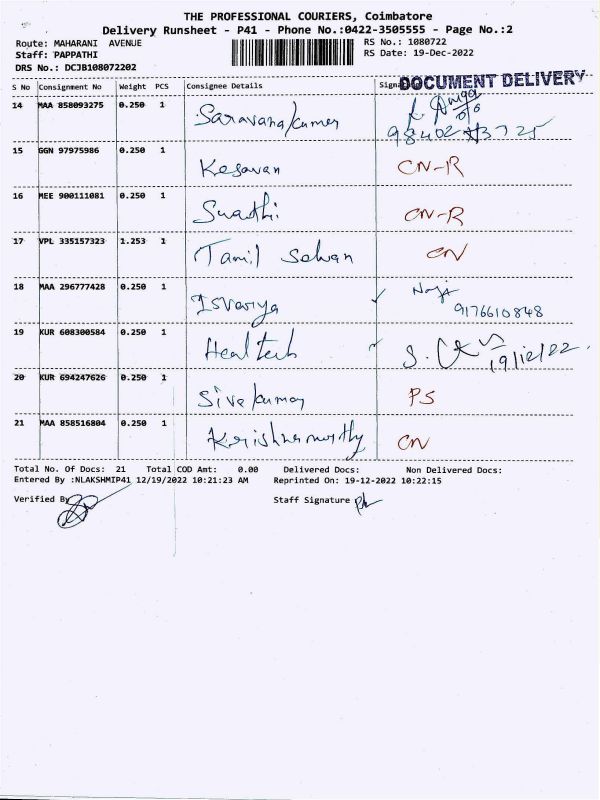 THE PROFESSIONAL COURIERS, Coimbatore
Delivery Runsheet - P41 - Phone No.:0422-3505555 - Page No.:2
Route: MAHARANI AVENUE RS No.: 1080722
Staff: PAPPATHI RS Date: 19-Dec-2022
DRS No.: DCJB108072202
DOCUMENT DELIVERY
S No Consignment No Weight PCS Consignee Details Sign
14 MAA 858093275 0.250 1 Saravanakumar
15 GGN 97975986 0.250 1 Kesavan CN-R
16 MEE 900111081 0.250 1 Swathi CN-R
17 VPL 335157323 1.253 1 Tamil Selvan CN
18 MAA 296777428 0.250 1 Isvarya 9176610848
19 KUR 608300584 0.250 1 Healtech 19/12/22.
20 KUR 694247626 0.250 1 Sivakumar PS
21 MAA 858516804 0.250 1 Krishnamurthy CN
Total No. Of Docs: 21 Total COD Amt: 0.00 Delivered Docs: Non Delivered Docs:
Entered By :NLAKSHMIP41 12/19/2022 10:21:23 AM Reprinted On: 19-12-2022 10:22:15
Verified By Staff Signature